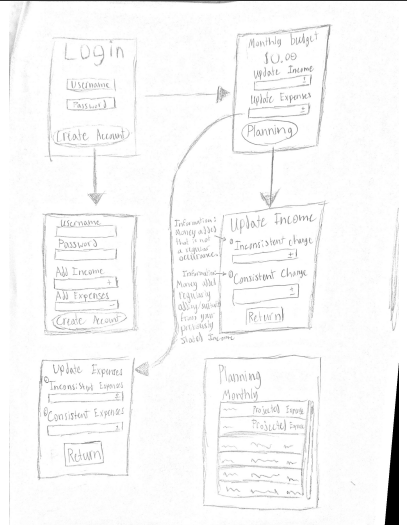 Login
Username
Password
Create Account
Monthly budget
$0.00
Update Income
±
Update Expenses
±
Planning
Username
Password
Add Income
+
Add Expenses
-
Create Account
Information:
Money added
that is not
a regular
occurrence.
Information
Money added
regularly
from your
previously
stated Income
Update Income
Inconsistent change
±
Consistent Change
±
Return
Update Expenses
Inconsistent Expenses
±
Consistent Expenses
±
Return
Planning
Monthly
Projected Expense
Projected Expense